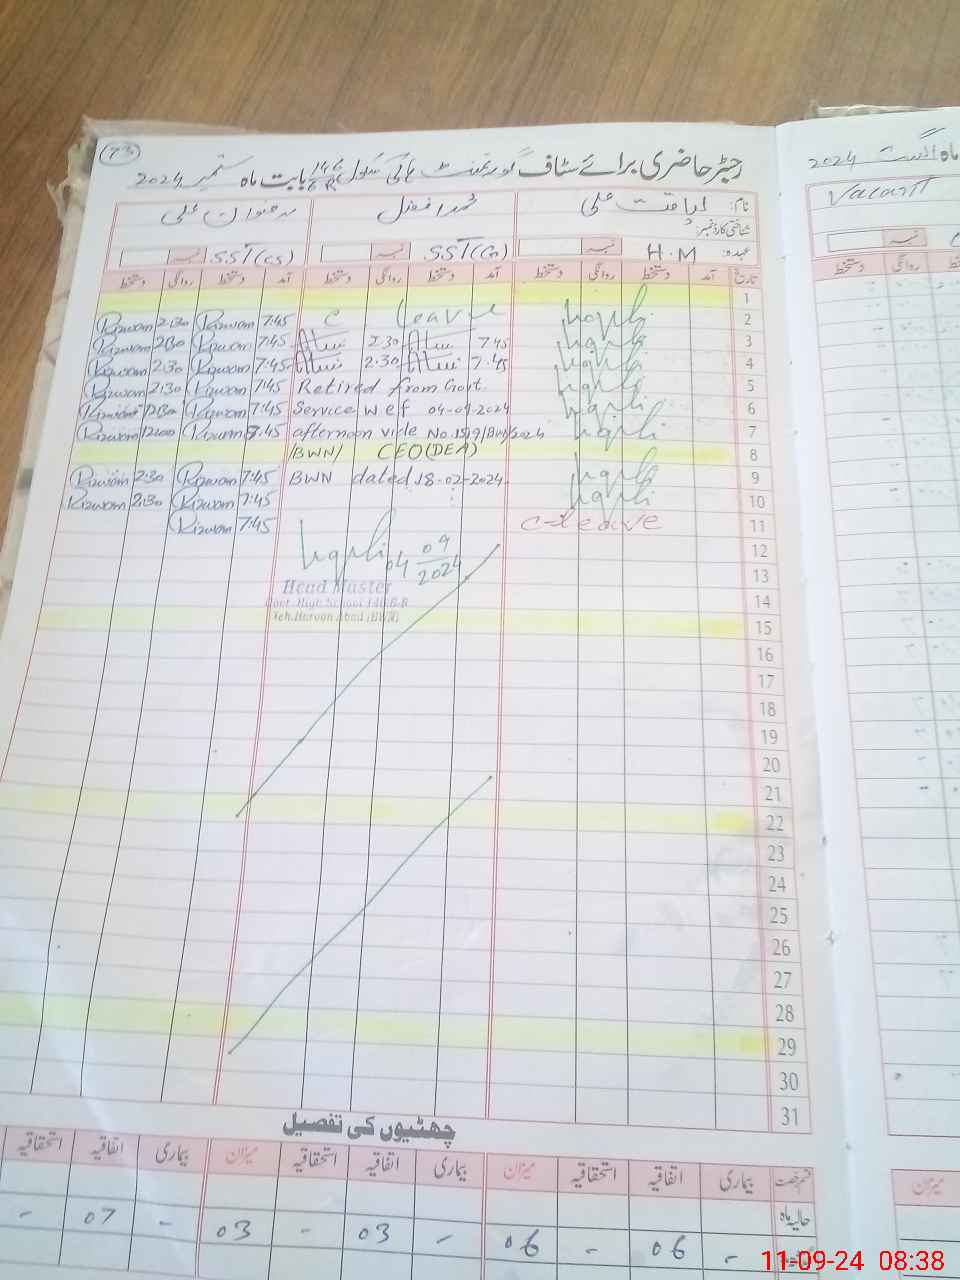 73
رجسٹر حاضری برائے سٹاف گورنمنٹ ہائی سکول 146/6.R بابت ماہ ستمبر 2024
نام: لیاقت علی محمد افضل رضوان علی
شناختی کارڈ نمبر:
عہدہ: H.M نمبر SST(Gn) نمبر SST(CS) نمبر
تاریخ آمد دستخط روانگی دستخط آمد دستخط روانگی دستخط آمد دستخط روانگی دستخط
1
Rizwan 2:30 Rizwan 7:45 C Leave 2
Rizwan 2:30 Rizwan 7:45 2.30 7.45 3
Rizwan 2:30 Rizwan 7:45 2.30 7.45 4
Rizwan 2:30 Rizwan 7:45 Retired from Govt. 5
Rizwan 12:30 Rizwan 7:45 Service wef 04-09-2024 6
Rizwan 12:00 Rizwan 7:45 afternoon vide No. 2024 7
/BWN/ CEO(DEA) 8
Rizwan 2:30 Rizwan 7:45 BWN dated 18-02-2024 9
Rizwan 2:30 Rizwan 7:45 10
Rizwan 7:45 C-Leave 11
04 09 2024 12
13
Head Master
Govt. High School 146/6-R
Teh. Haroon Abad (BWN)
14
15
16
17
18
19
20
21
22
23
24
25
26
27
28
29
30
31
چھٹیوں کی تفصیل
قسم رخصت بیماری اتفاقیہ استحقاقیہ میزان بیماری اتفاقیہ استحقاقیہ میزان بیماری اتفاقیہ استحقاقیہ
حالیہ ماہ
- 06 - 06 - 03 - 03 - 07 -
ماہ اگست 2024
Vacant
نمبر
روانگی دستخط
میزان
11-09-24 08:38